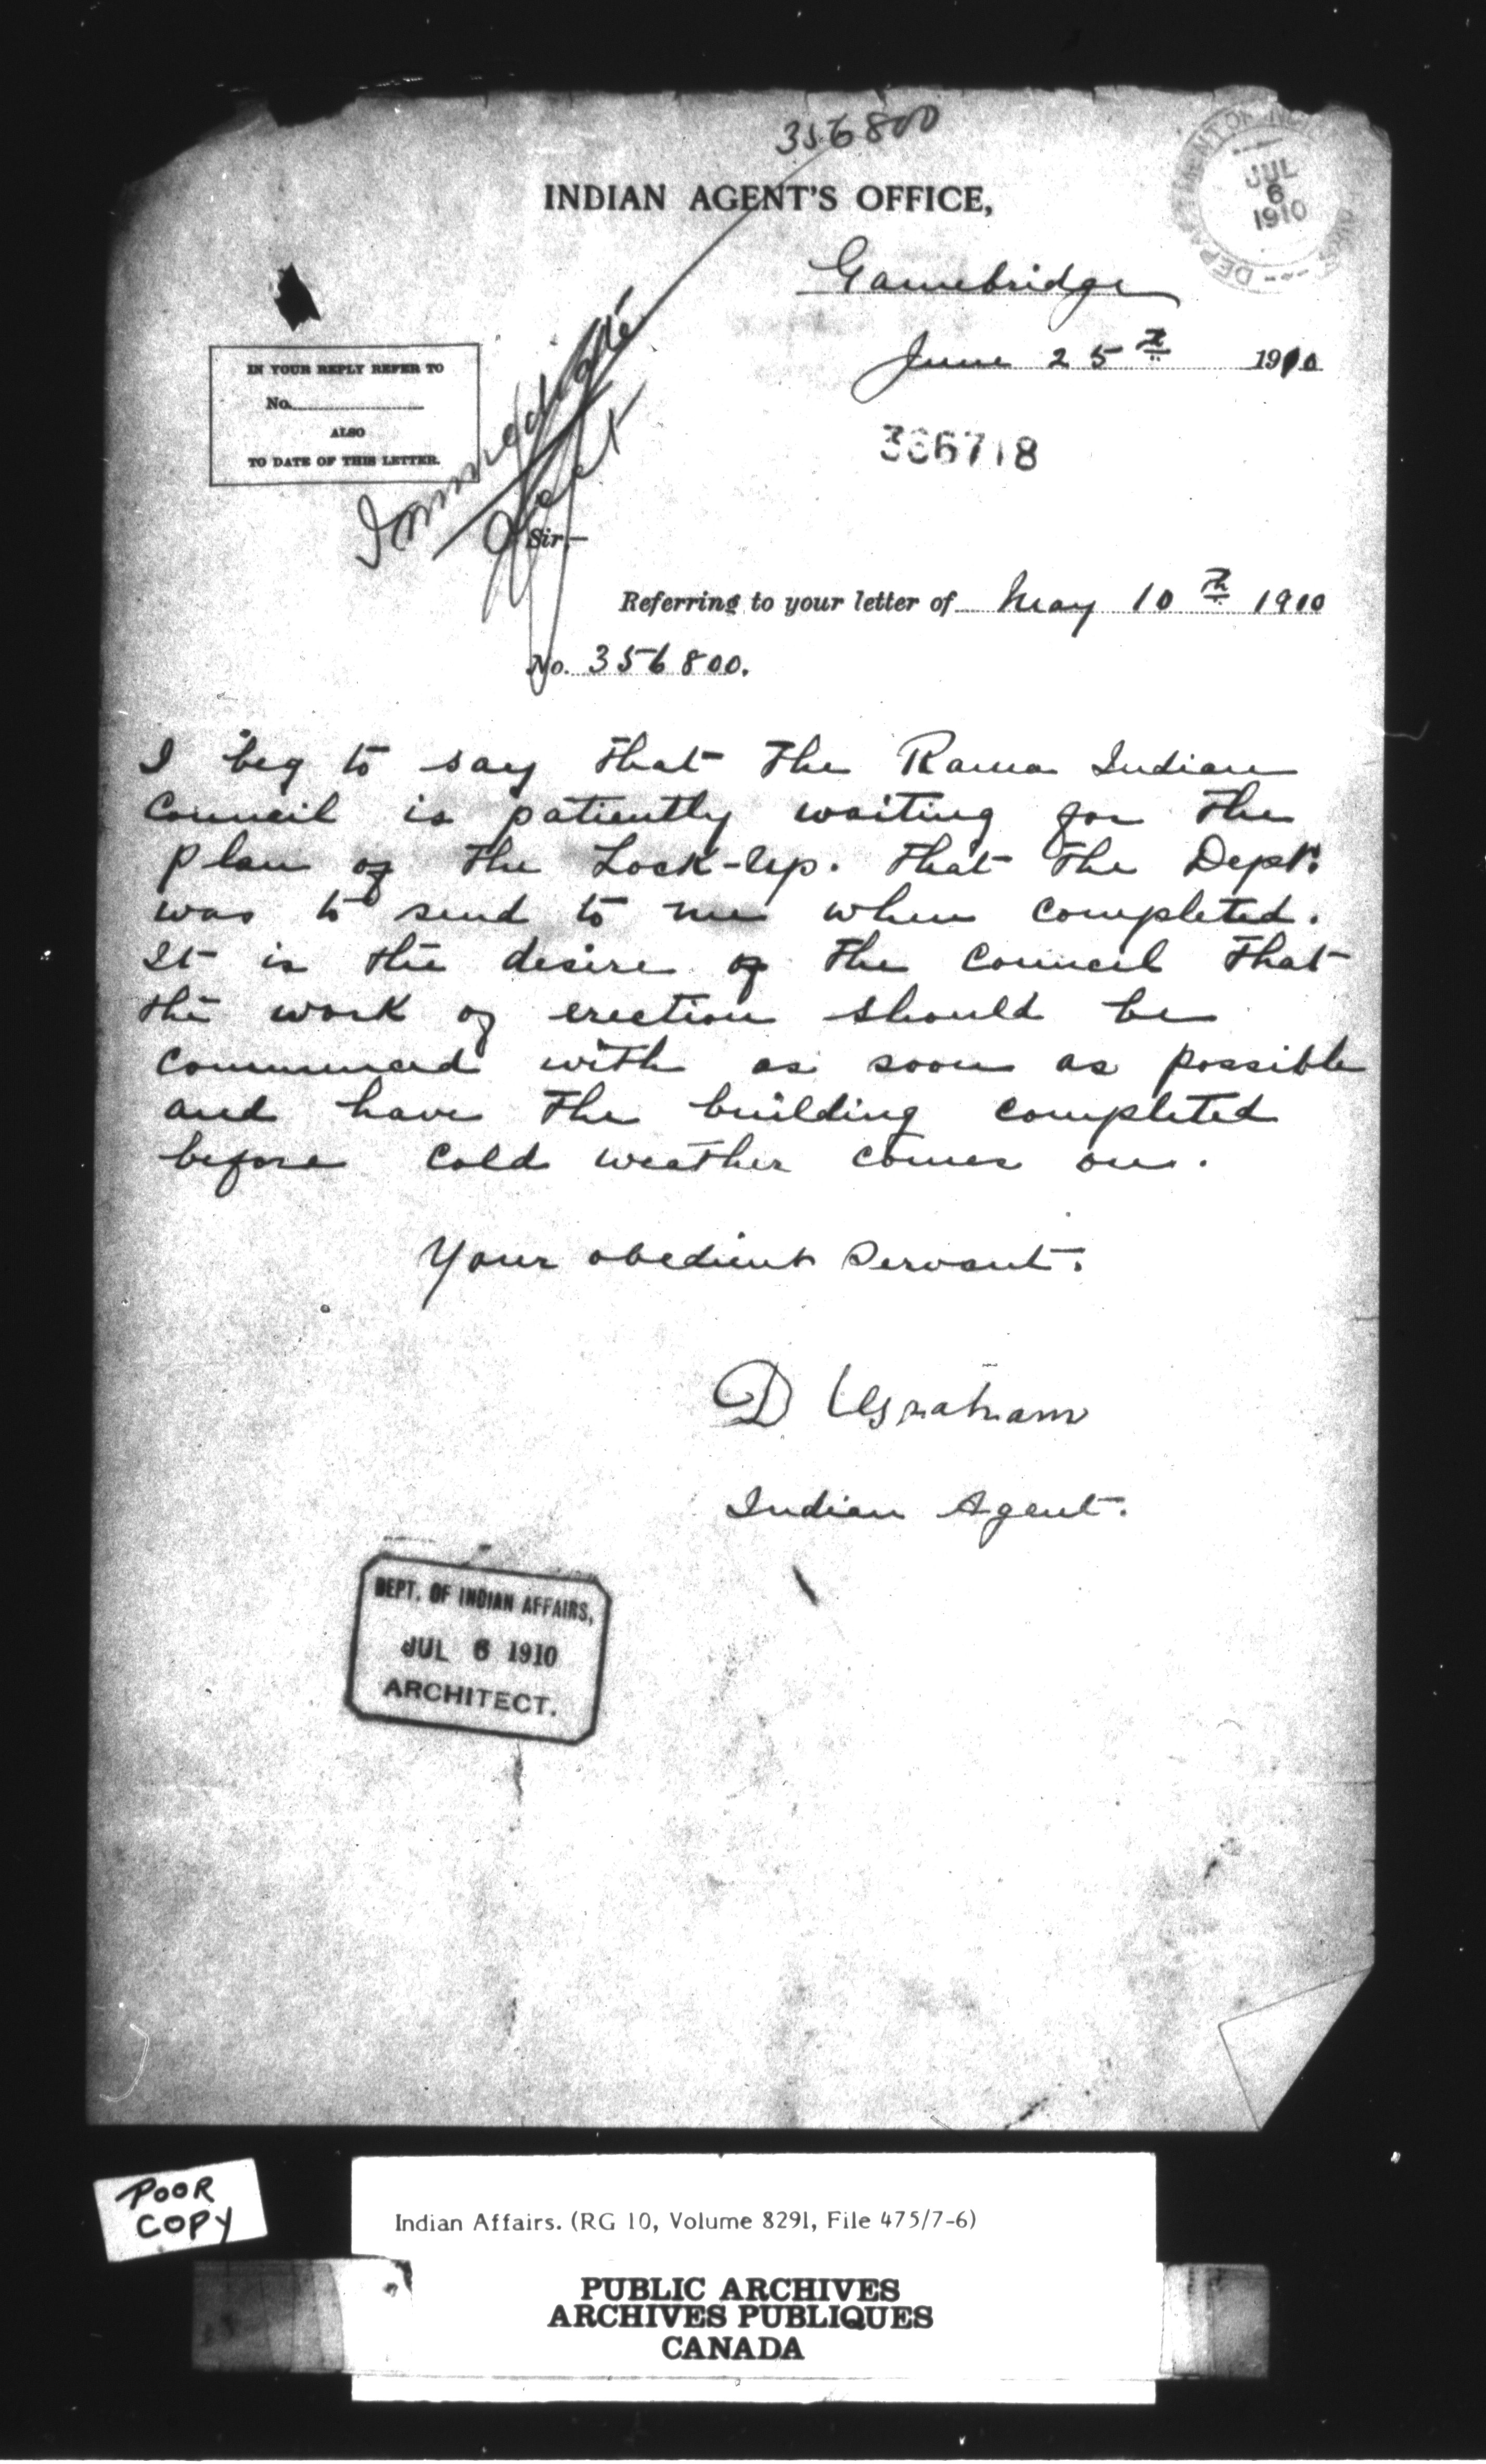 356800
INDIAN AGENT'S OFFICE,
DEPARTMENT OF INDIAN
JUL
6
1910
Gamebridge
June 25th 1910
IN YOUR REPLY REFER TO
No.
ALSO
TO DATE OF THIS LETTER.
366718
Immediate
Sir,—
Referring to your letter of May 10th 1910
No. 356800.
I beg to say that the Rama Indian
Council is patiently waiting for the
plan of the Lock-up. that the Dept.
was to send to me when completed.
It is the desire of the Council that
the work of erection should be
commenced with as soon as possible
and have the building completed
before cold weather comes on.
Your obedient Servant.
D McGraham
Indian Agent.
DEPT. OF INDIAN AFFAIRS,
JUL 6 1910
ARCHITECT.
POOR
COPY
Indian Affairs. (RG 10, Volume 8291, File 475/7-6)
PUBLIC ARCHIVES
ARCHIVES PUBLIQUES
CANADA